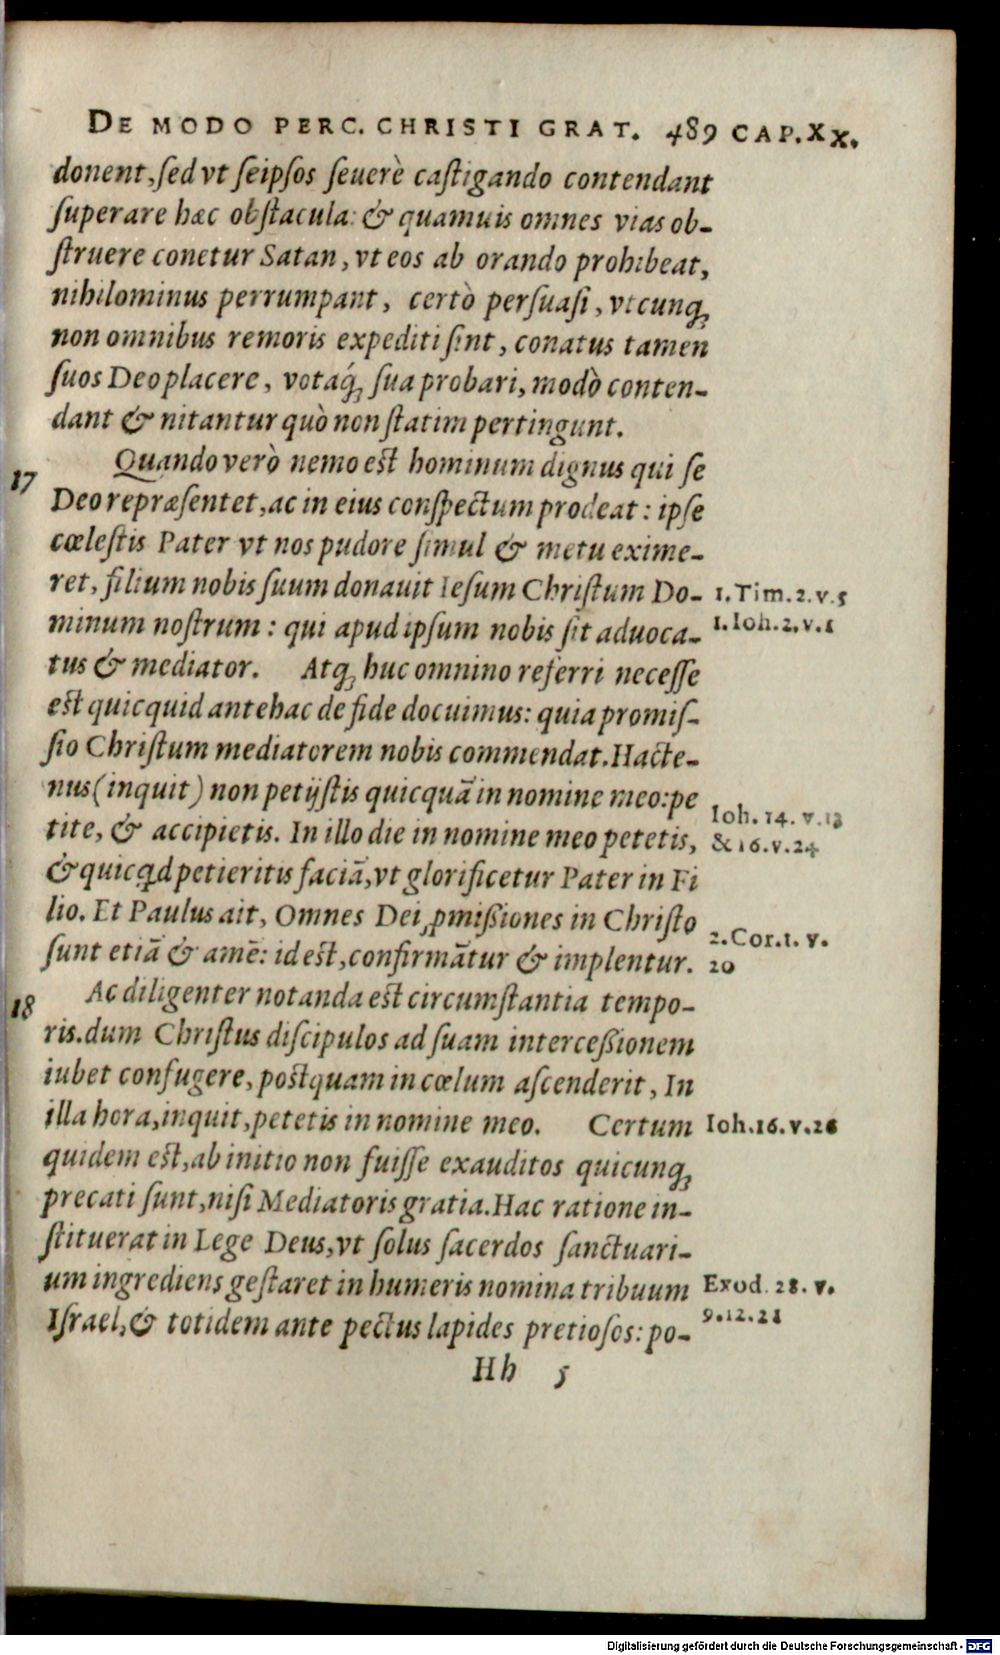 DE MODO PERC. CHRISTI GRAT. 489 CAP. XX.
donent, ſed vt ſeipſos ſeuerè caſtigando contendant
ſuperare hæc obſtacula: & quamuis omnes vias ob-
ſtruere conetur Satan, vt eos ab orando prohibeat,
nihilominus perrumpant, certò perſuaſi, vtcunq;
non omnibus remoris expediti ſint, conatus tamen
ſuos Deo placere, votaq́; ſua probari, modò conten-
dant & nitantur quò non ſtatim pertingunt.
17 Quando verò nemo est hominum dignus qui ſe
Deo repræſentet, ac in eius conſpectum prodeat: ipſe
cœleſtis Pater vt nos pudore ſimul & metu exime-
ret, filium nobis ſuum donauit Ieſum Chriſtum Do- 1. Tim. 2. v. 5
minum noſtrum: qui apud ipſum nobis ſit aduoca- 1. Ioh. 2. v. 1
tus & mediator. Atq; huc omnino referri neceſſe
est quicquid antehac de fide docuimus: quia promiſ-
ſio Chriſtum mediatorem nobis commendat. Hacte-
nus (inquit) non petijſtis quicquã in nomine meo: pe
tite, & accipietis. In illo die in nomine meo petetis, Ioh. 14. v. 13
& quicqd petieritis faciã, vt glorificetur Pater in Fi & 16. v. 24
lio. Et Paulus ait, Omnes Dei ꝓmißiones in Chriſto
ſunt etiã & amẽ: id est, confirmãtur & implentur. 2. Cor. 1. v.
20
18 Ac diligenter notanda est circumſtantia tempo-
ris. dum Chriſtus diſcipulos ad ſuam interceßionem
iubet confugere, postquam in cœlum aſcenderit, In
illa hora, inquit, petetis in nomine meo. Certum Ioh. 16. v. 26
quidem est, ab initio non fuiſſe exauditos quicunq;
precati ſunt, niſi Mediatoris gratia. Hac ratione in-
ſtituerat in Lege Deus, vt ſolus ſacerdos ſanctuari-
um ingrediens geſtaret in humeris nomina tribuum Exod. 28. v.
Iſrael, & totidem ante pectus lapides pretioſos: po- 9. 12. 21
Hh 5
Digitalisierung gefördert durch die Deutsche Forschungsgemeinschaft - DFG